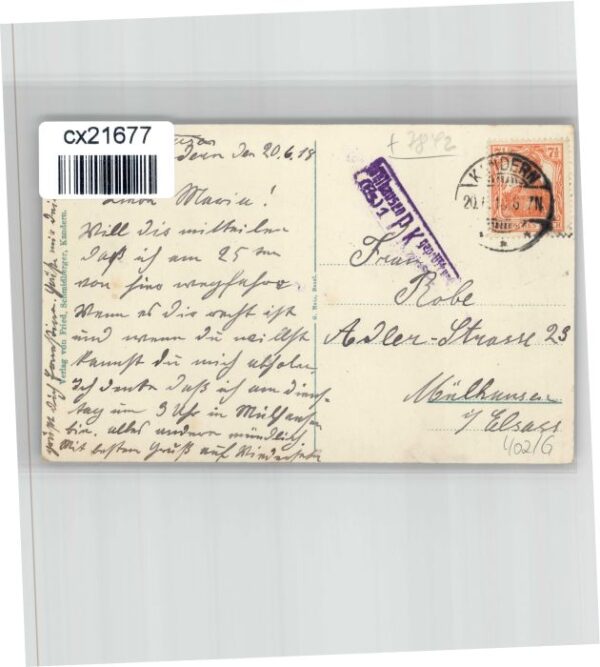 cx21677
dern den 20.6.18
Liebe Maria!
Will dir mitteilen
daß ich am 25 ten
von hier wegfahre
Wenn es dir recht ist
und wenn du willst
kannst du mich abholen
Ich denke daß ich am diens-
tag um 3 Uhr in Mülhausen
bin. alles andere mündlich.
Mit besten Gruß auf Wiedersehen
Verlag von Fried. Schmidberger, Kandern.
+ 7842
KANDERN
7½
P.K.
Frau
Robe
Adler-Strasse 23
Mülhausen
i/ Elsass
402/G